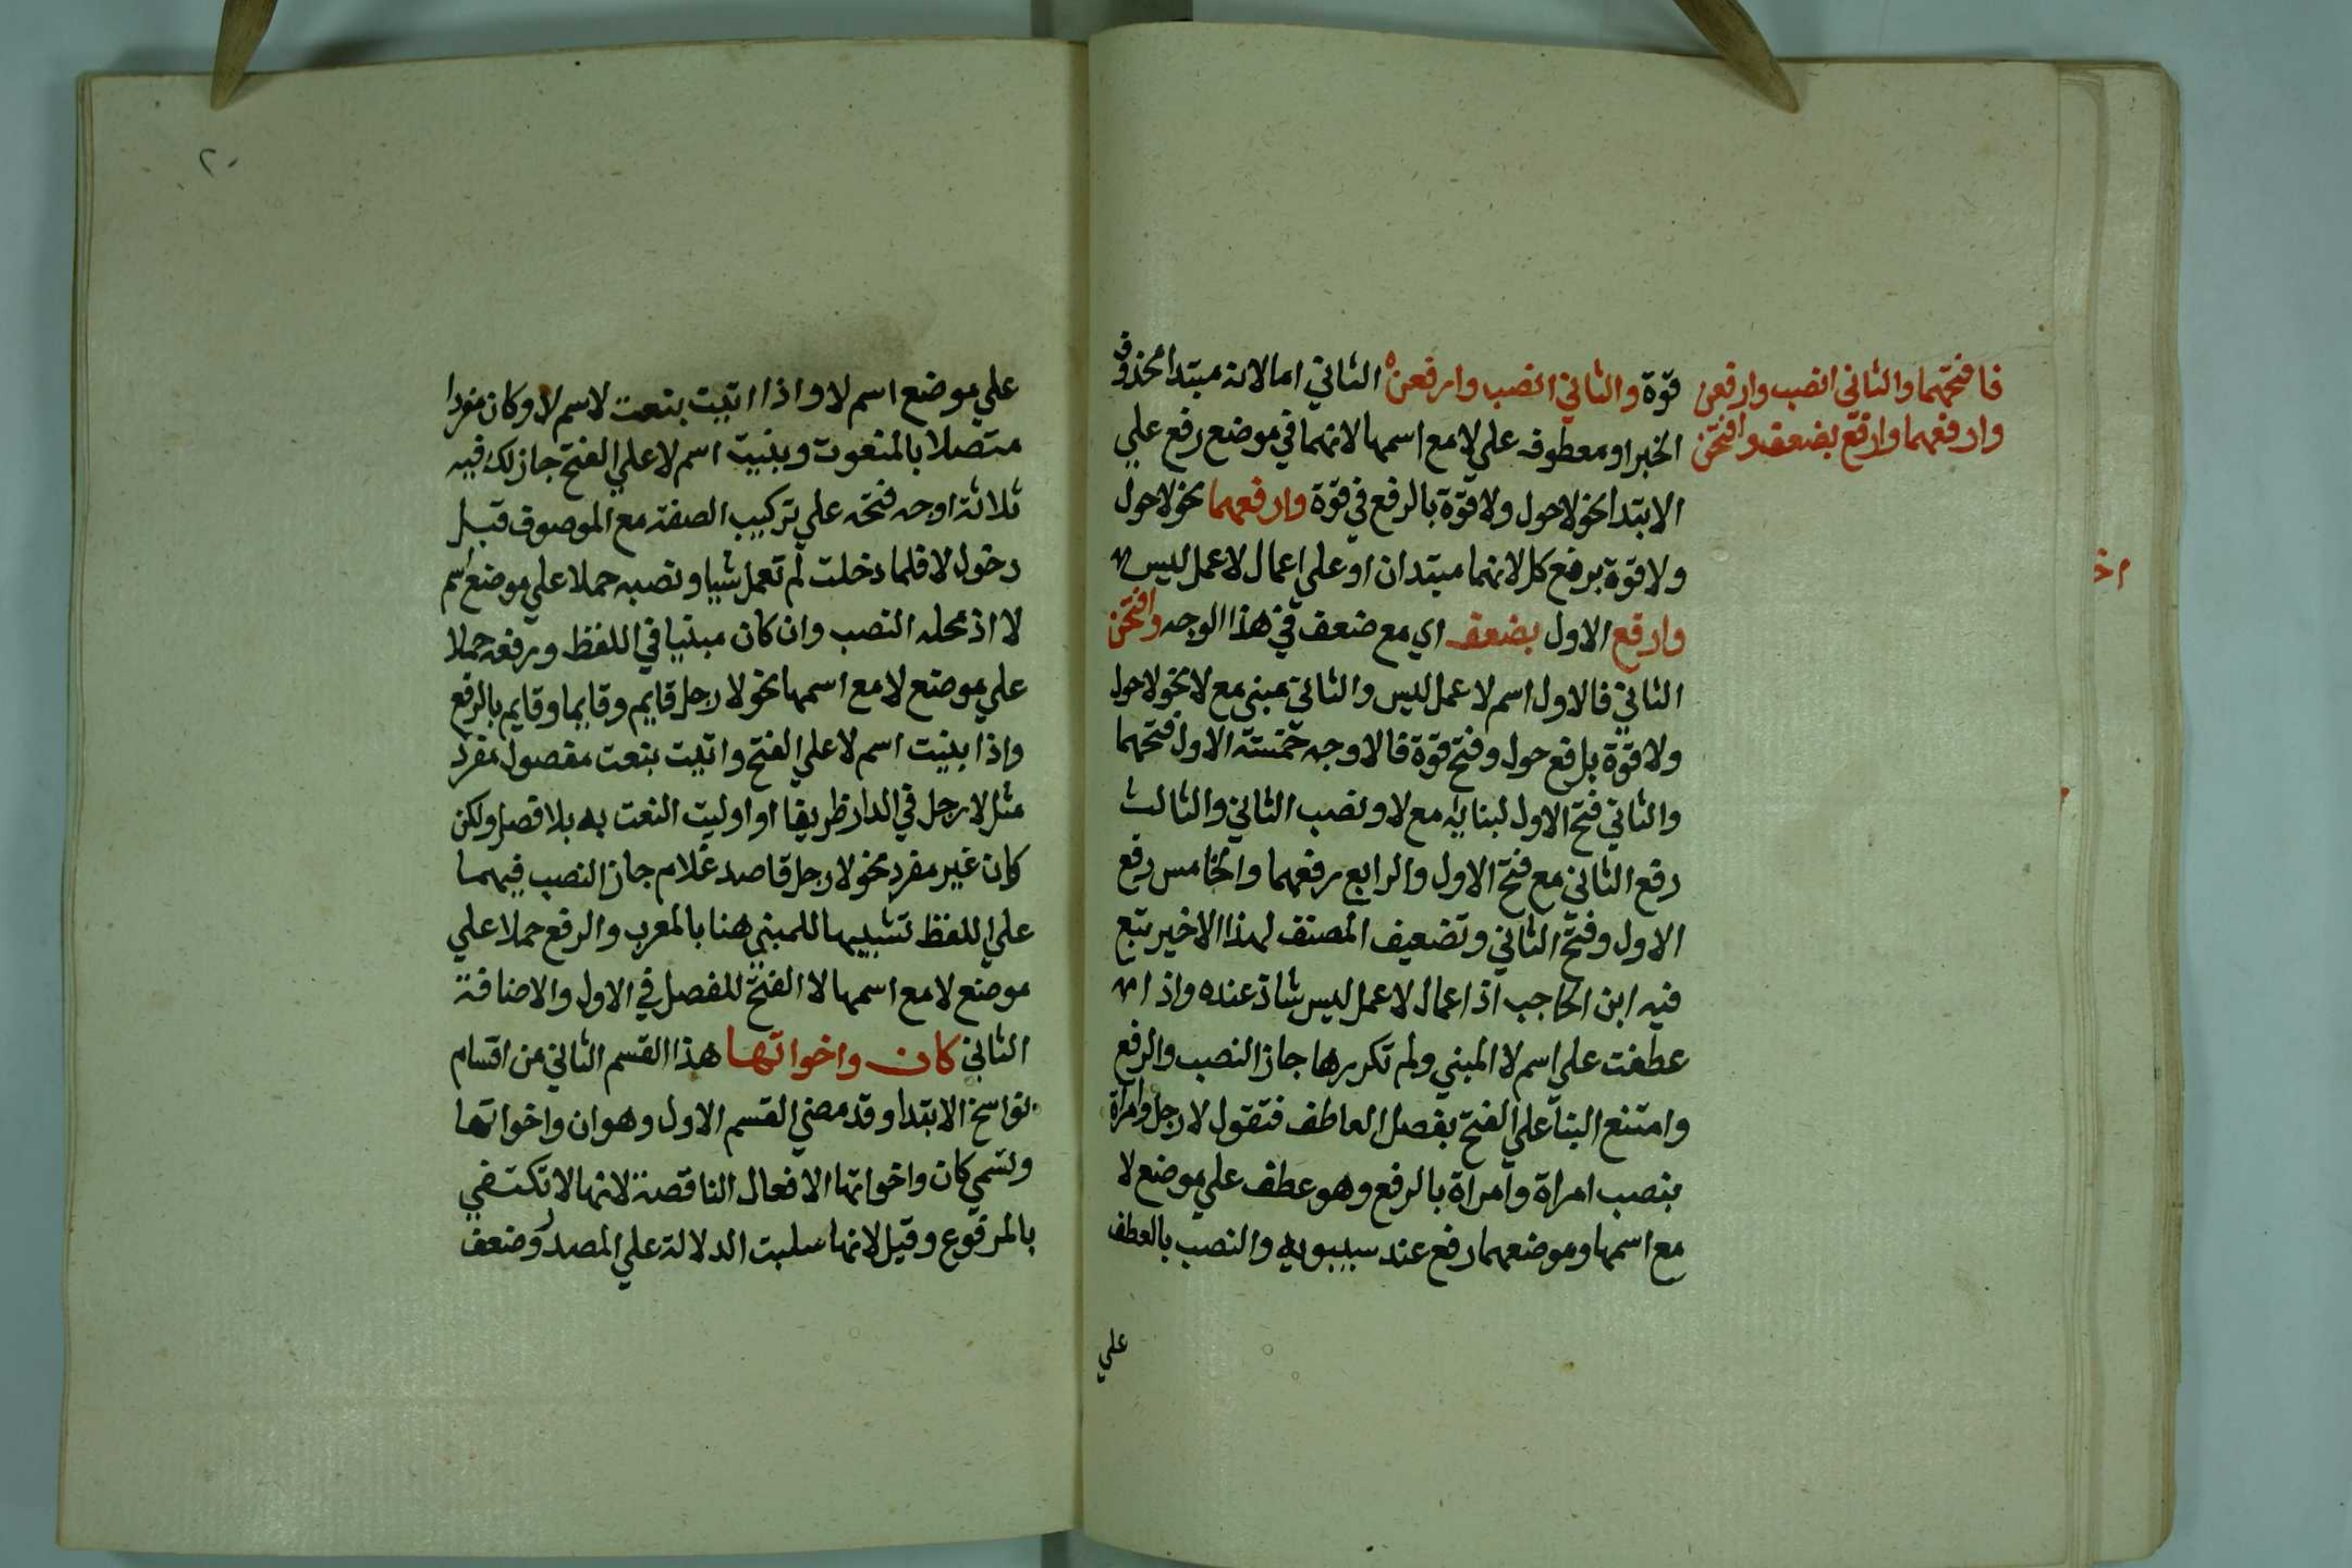 فافتحهما والثاني انصب وارفعن
وارفعهما وارفع بضعف وافتحن
قوة والثاني انصب وارفعن الثاني اما لانه مبتدا محذوف
الخبر او معطوف علي لا مع اسمها لانهما في موضع رفع علي
الابتدا نحو لا حول ولا قوة بالرفع في قوة وارفعهما نحو لا حول
ولا قوة برفع كل لانهما مبتدان او علي اعمال لا عمل ليس
وارفع الاول بضعف اي مع ضعف في هذا الوجه وافتحن
الثاني فالاول اسم لا عمل ليس والثاني مبني مع لا نحو لا حول
ولا قوة برفع حول وفتح قوة فالاوجه خمسة الاول فتحهما
والثاني فتح الاول لبنايه مع لا ونصب الثاني والثالث
رفع الثاني مع فتح الاول والرابع رفعهما والخامس رفع
الاول وفتح الثاني وتضعيف المصنف لهذا الاخير تبع
فيه ابن الحاجب اذ اعمال لا عمل ليس شاذ عنده واذا
عطفت علي اسم لا المبني ولم تكررها جاز النصب والرفع
وامتنع البنا علي الفتح بفصل العاطف فتقول لا رجل وامراة
بنصب امراة وامراة بالرفع وهو عطف علي موضع لا
مع اسمها وموضعهما رفع عند سيبويه والنصب بالعطف
علي
٢٠
علي موضع اسم لا واذا اتيت بنعت لاسم لا وكان مفردا
متصلا بالمنعوت وبنيت اسم لا علي الفتح جاز لك فيه
ثلاثة اوجه فتحه علي تركيب الصفة مع الموصوف قبل
دخول لا فلما دخلت لم تعمل شيا ونصبه حملا علي موضع اسم
لا اذ محله النصب وان كان مبنيا في اللفظ ورفعه حملا
علي موضع لا مع اسمها نحو لا رجل قايم وقايما وقايم بالرفع
واذا بنيت اسم لا علي الفتح واتيت بنعت مفصول مفرد
مثل لا رجل في الدار ظريفا او اوليت النعت به بلا فصل ولكن
كان غير مفرد نحو لا رجل قاصد غلام جاز النصب فيهما
علي اللفظ تشبيها للمبني هنا بالمعرب والرفع حملا علي
موضع لا مع اسمها لا الفتح للفصل في الاول والاضافة
الثاني كان واخواتها هذا القسم الثاني من اقسام
نواسخ الابتدا وقد مضي القسم الاول وهو ان واخواتها
وتسمي كان واخواتها الافعال الناقصة لانها لا تكتفي
بالمرفوع وقيل لانها سلبت الدلالة علي المصدر وضعف